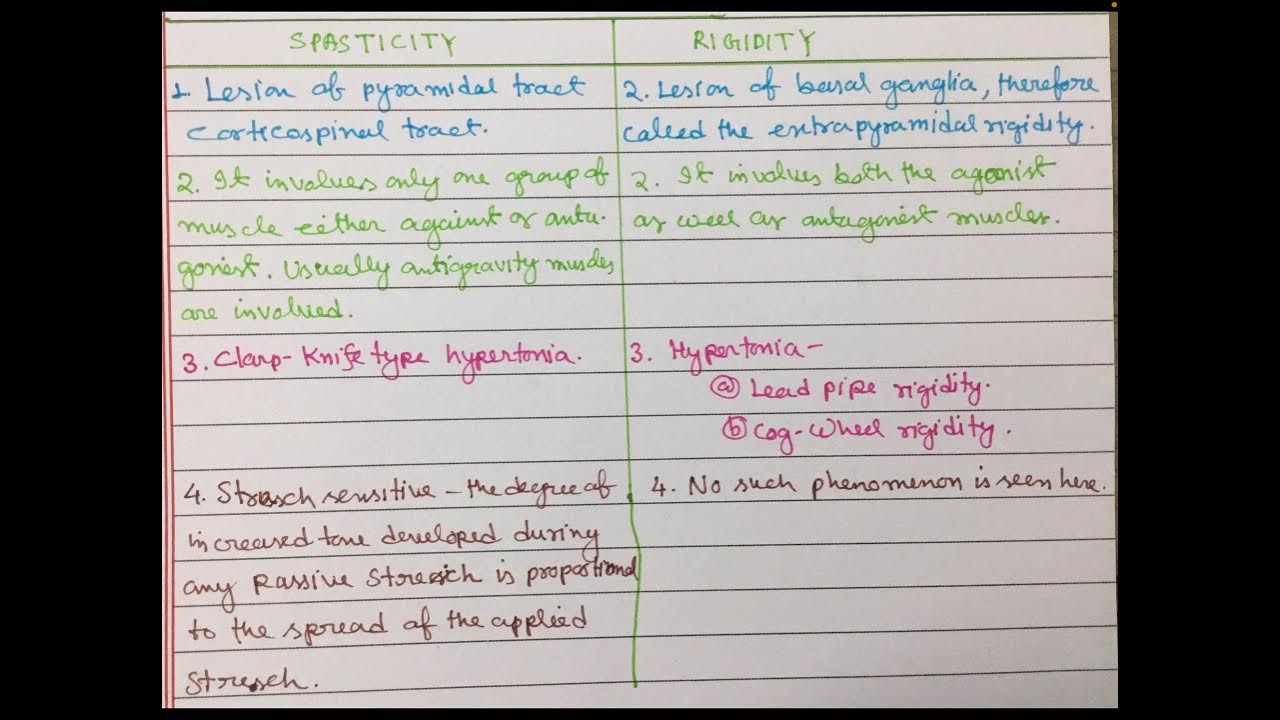 SPASTICITY
RIGIDITY
1. Lesion of pyramidal tract
corticospinal tract.
2. Lesion of basal ganglia, therefore
caleed the extrapyramidal rigidity.
2. It involves only one group of
muscle either against or anta-
gonist. Usually antigravity muscles
are involved.
2. It involves both the agonist
as weel as antagonist muscles.
3. Clasp-Knife type hypertonia.
3. Hypertonia-
(a) Lead pipe rigidity.
(b) Cog-wheel rigidity.
4. Stresch sensitive - the degree of
increased tone developed during
any passive stresch is proportional
to the spread of the applied
stresch.
4. No such phenomenon is seen here.